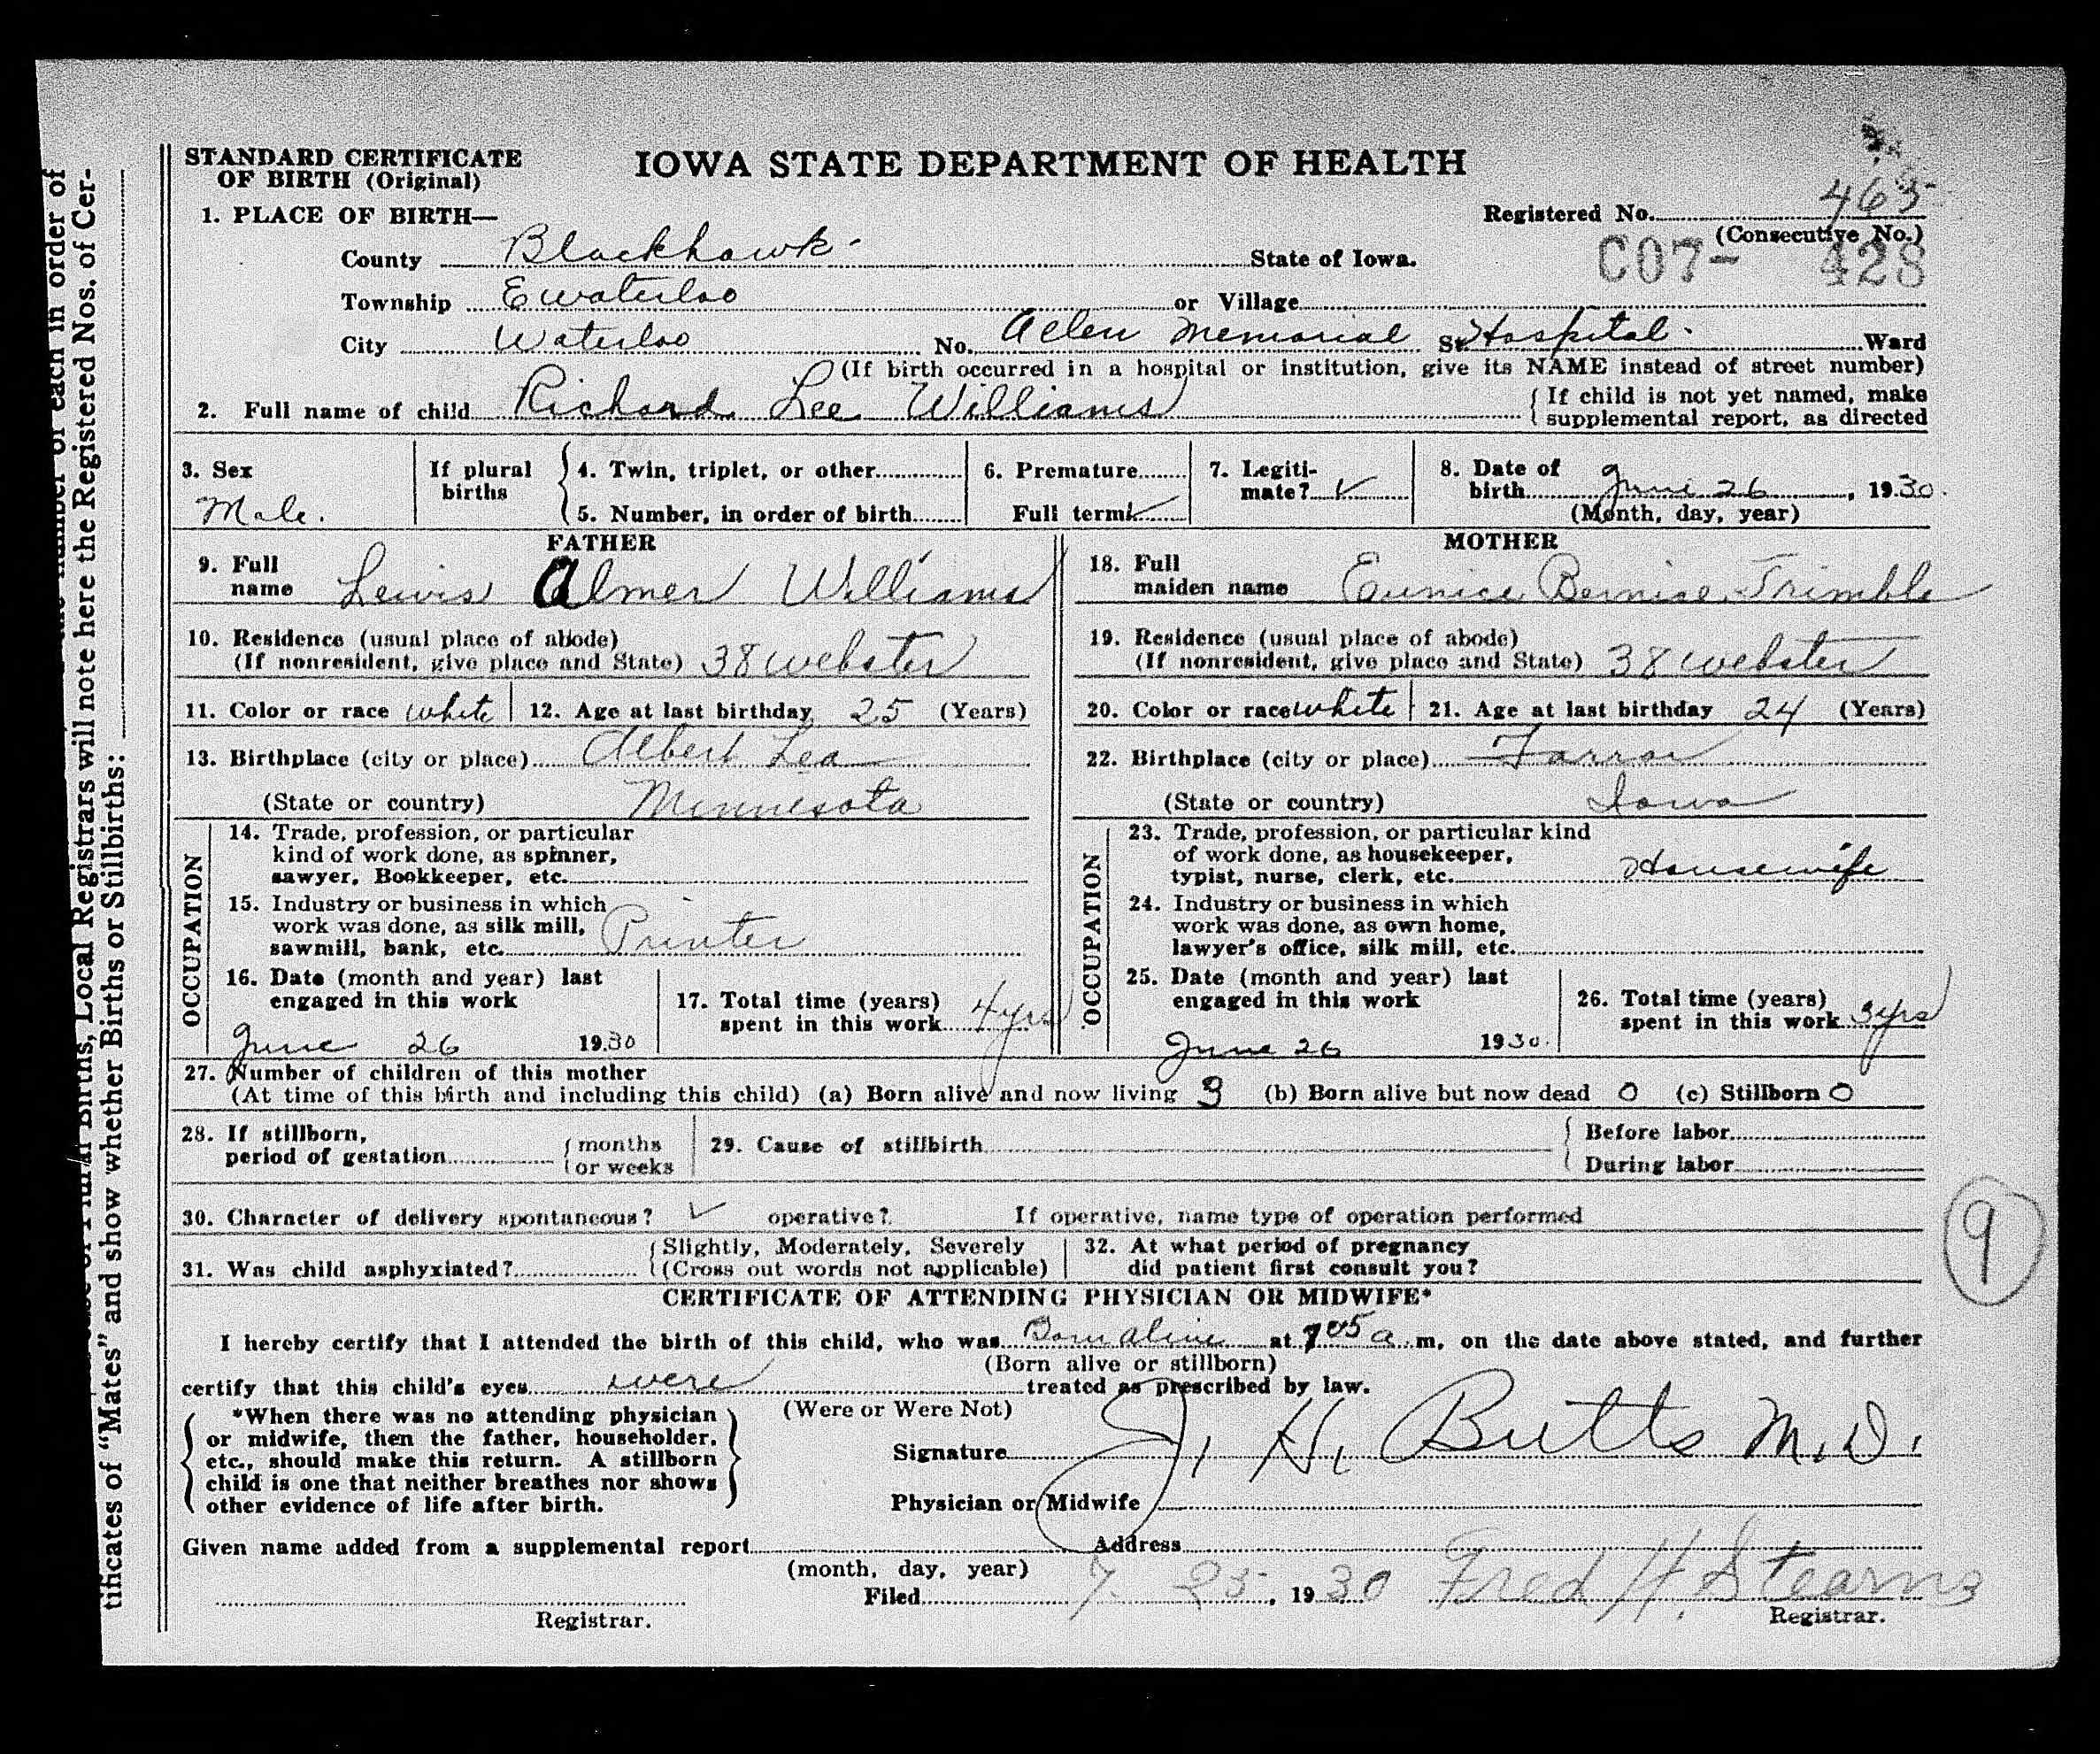 STANDARD CERTIFICATE
OF BIRTH (Original)
IOWA STATE DEPARTMENT OF HEALTH
1. PLACE OF BIRTH—
Registered No. 463
(Consecutive No.)
C07- 428
County Blackhawk State of Iowa.
Township E Waterloo or Village
City Waterloo No. Allen Memorial St. Hospital. Ward
(If birth occurred in a hospital or institution, give its NAME instead of street number)
2. Full name of child Richard Lee Williams
If child is not yet named, make
supplemental report, as directed
3. Sex
Male.
If plural
births
4. Twin, triplet, or other
5. Number, in order of birth
6. Premature
Full term ✓
7. Legiti-
mate? ✓
8. Date of
birth June 26, 1930.
(Month, day, year)
FATHER
9. Full
name Lewis Almer Williams
10. Residence (usual place of abode)
(If nonresident, give place and State) 38 Webster
11. Color or race white 12. Age at last birthday 25 (Years)
13. Birthplace (city or place) Albert Lea
(State or country) Minnesota
OCCUPATION
14. Trade, profession, or particular
kind of work done, as spinner,
sawyer, Bookkeeper, etc.
15. Industry or business in which
work was done, as silk mill,
sawmill, bank, etc. Printer
16. Date (month and year) last
engaged in this work
June 26 1930
17. Total time (years)
spent in this work 4 yrs
MOTHER
18. Full
maiden name Eunice Bernice Trimble
19. Residence (usual place of abode)
(If nonresident, give place and State) 38 Webster
20. Color or race white 21. Age at last birthday 24 (Years)
22. Birthplace (city or place) Farrar
(State or country) Iowa
OCCUPATION
23. Trade, profession, or particular kind
of work done, as housekeeper,
typist, nurse, clerk, etc. Housewife
24. Industry or business in which
work was done, as own home,
lawyer's office, silk mill, etc.
25. Date (month and year) last
engaged in this work
June 26 1930.
26. Total time (years)
spent in this work 3 yrs
27. Number of children of this mother
(At time of this birth and including this child) (a) Born alive and now living 3 (b) Born alive but now dead 0 (c) Stillborn 0
28. If stillborn,
period of gestation
months
or weeks
29. Cause of stillbirth
Before labor
During labor
30. Character of delivery spontaneous? ✓ operative? If operative, name type of operation performed
31. Was child asphyxiated?
Slightly, Moderately, Severely
(Cross out words not applicable)
32. At what period of pregnancy
did patient first consult you?
9
CERTIFICATE OF ATTENDING PHYSICIAN OR MIDWIFE*
I hereby certify that I attended the birth of this child, who was Born alive at 7 05 a. m. on the date above stated, and further
(Born alive or stillborn)
certify that this child's eyes were treated as prescribed by law.
(Were or Were Not)
*When there was no attending physician
or midwife, then the father, householder,
etc., should make this return. A stillborn
child is one that neither breathes nor shows
other evidence of life after birth.
Signature J. H. Butts M.D.
Physician or Midwife
Given name added from a supplemental report
(month, day, year)
Address
Filed 7 25, 1930 Fred H. Stearns
Registrar.
Registrar.
births, Local Registrars will note here the Registered Nos. of Cer-
tificates of "Mates" and show whether Births or Stillbirths: